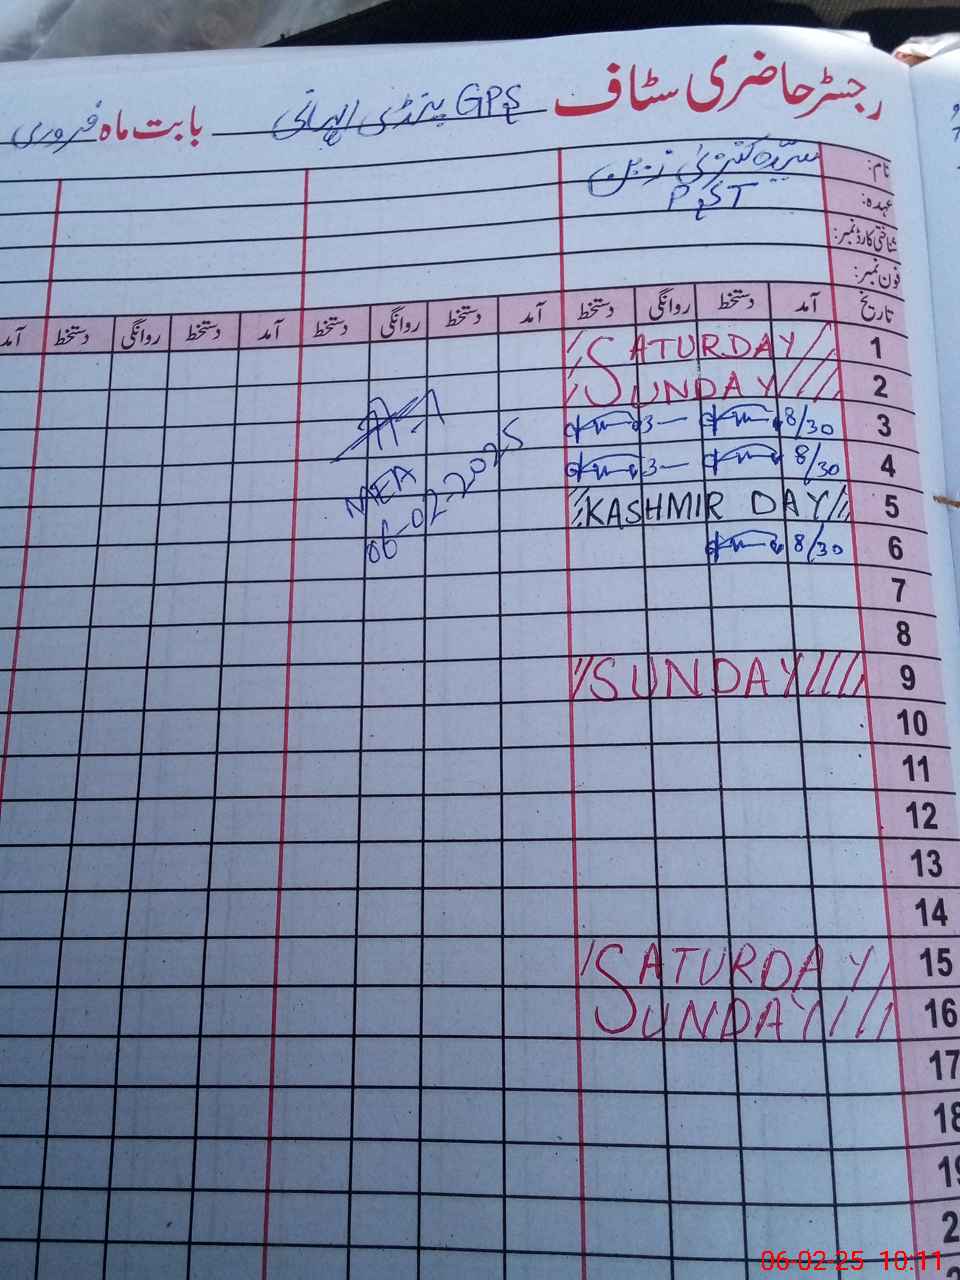 رجسٹر حاضری سٹاف GPS پنڈی بابت ماہ فروری
نام:
عہدہ: PST
شناختی کارڈ نمبر:
فون نمبر:
تاریخ آمد دستخط روانگی دستخط آمد دستخط روانگی دستخط آمد دستخط روانگی دستخط آمد
1 SATURDAY
2 SUNDAY
3 8/30 3
4 8/30 3
5 KASHMIR DAY
6 8/30
MEA
06-02-2025
7
8
9 SUNDAY
10
11
12
13
14
15 SATURDAY
16 SUNDAY
17
18
19
06-02-25 10:11